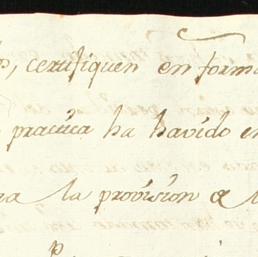 certifiquen en forma
practica ha havido en
la provision a